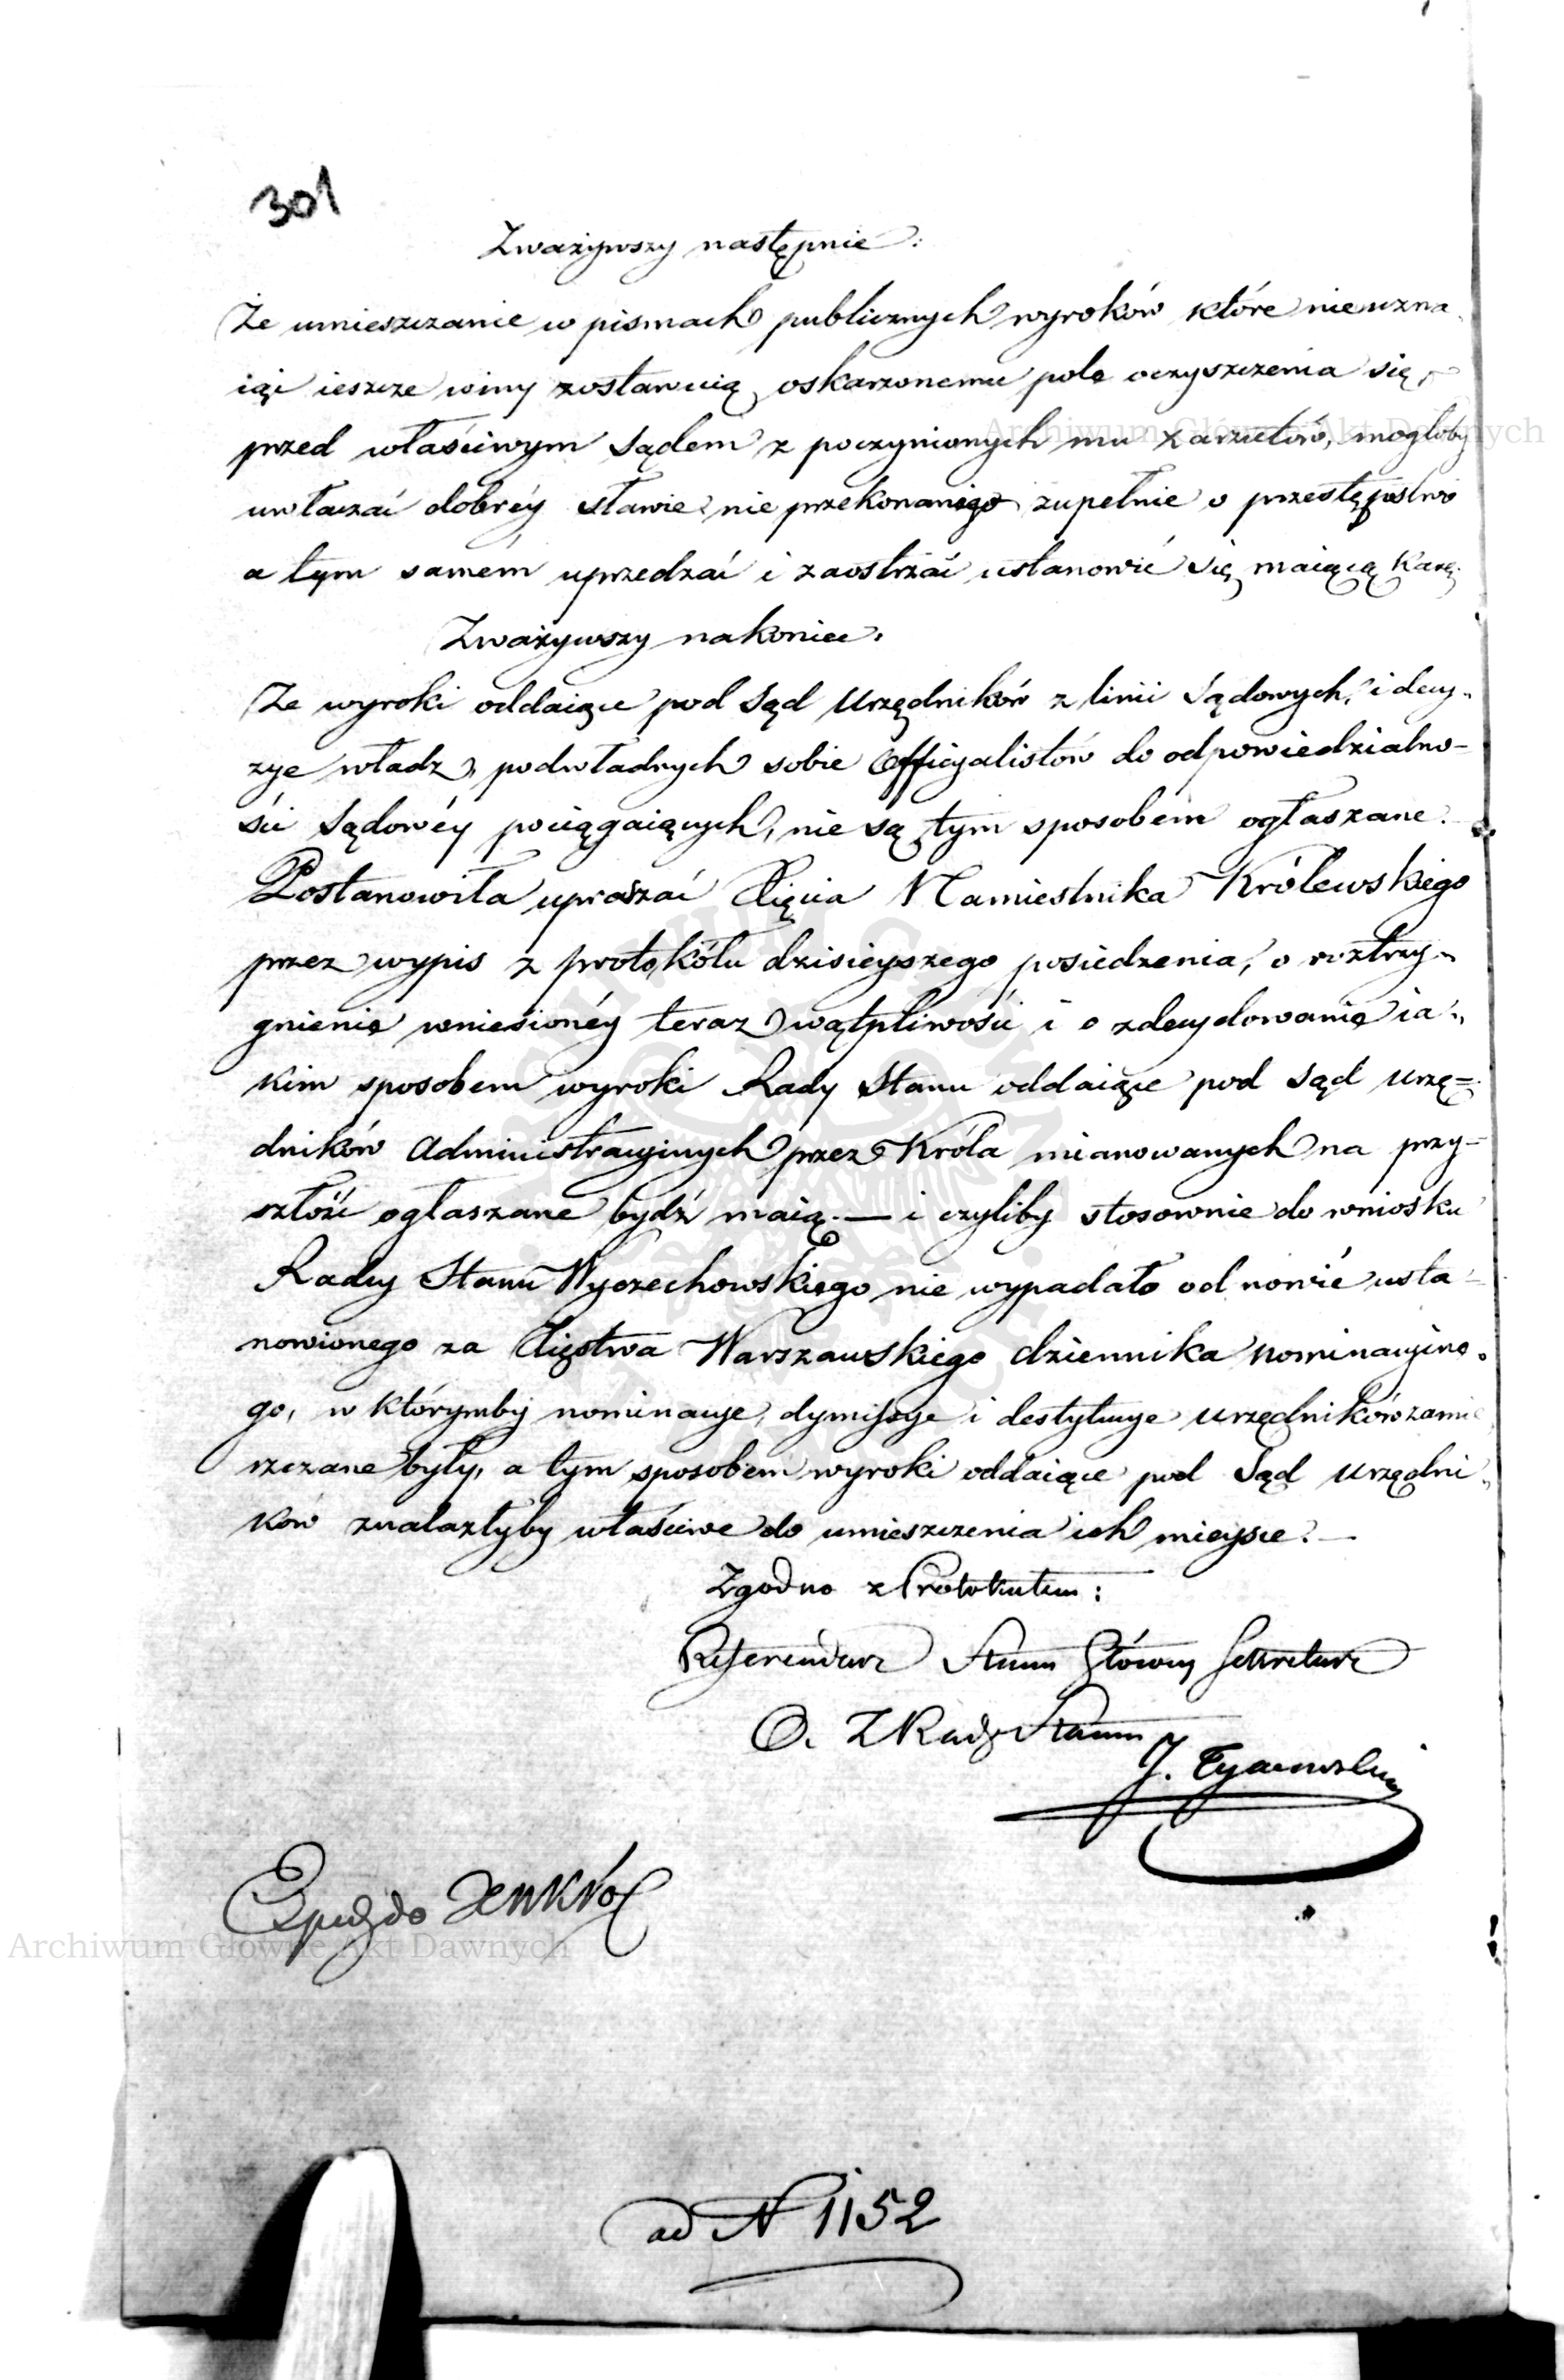 301
Zważywszy następnie:
Że umieszczanie w pismach publicznych wyroków które nieuzna-
iąc ieszcze winy zostawuią oskarzonemu pole oczyszczenia się,
przed właściwym Sądem z poczynionych mu zarzutów, mogłoby
uwłaczać dobréy sławie nie przekonanego zupełnie o przestępstwo
a tym samém uprzedzać i zaostrzać ustanowić się maiącą karę.
Zważywszy nakoniec.
Że wyroki oddaiące pod Sąd Urzędników z linii Sądowych, i decy-
zye władz, podwładnych sobie Officyalistów do odpowiedzialno-
ści Sądowéy pociągaiących, nie są tym sposobem ogłaszane.
Postanowiła upraszać Xięcia Namiestnika Królewskiego
przez wypis z protokółu dzisieyszego posiedzenia, o roztrzy-
gnienie wniesionéy teraz wątpliwości i o zdecydowanie ia-
kim sposobem wyroki Rady Stanu oddaiące pod Sąd Urzę=
dników Administracyinych przez Króla mianowanych na przy-
szłość ogłaszane bydź maią. — i czyliby stosownie do wniosku
Radcy Stanu Wyczechowskiego nie wypadało odnowić usta-
nowionego za Xięstwa Warszawskiego dziennika nominacyine-
go, w którymby nominacye, dymissye i destytucye urzędników zamie
szczane były, a tym sposobem wyroki oddaiące pod Sąd Urzędni-
ków znalazłyby właściwe do umieszczenia ich mieysce. —
Zgodno z Protokułem:
Referendarz Stanu Główny Sekretarz
Rady Stanu
J. Tymowski
ad N 1152
Archiwum Główne Akt Dawnych
Archiwum Główne Akt Dawnych